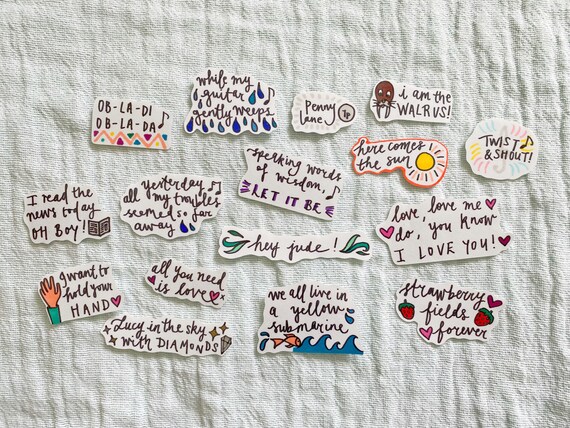 OB-LA-DI
OB-LA-DA
while my
guitar
gently weeps
Penny
lane
1p
i am the
WALRUS!
here comes
the sun
TWIST
& SHOUT!
speaking words
of wisdom,
LET IT BE
I read the
news today
OH BOY!
yesterday
all my troubles
seemed so far
away
hey jude!
love, love me
do, you know
I LOVE YOU!
I want to
hold your
HAND
all you need
is love
Lucy in the sky
with DIAMONDS
we all live in
a yellow
submarine
strawberry
fields
forever